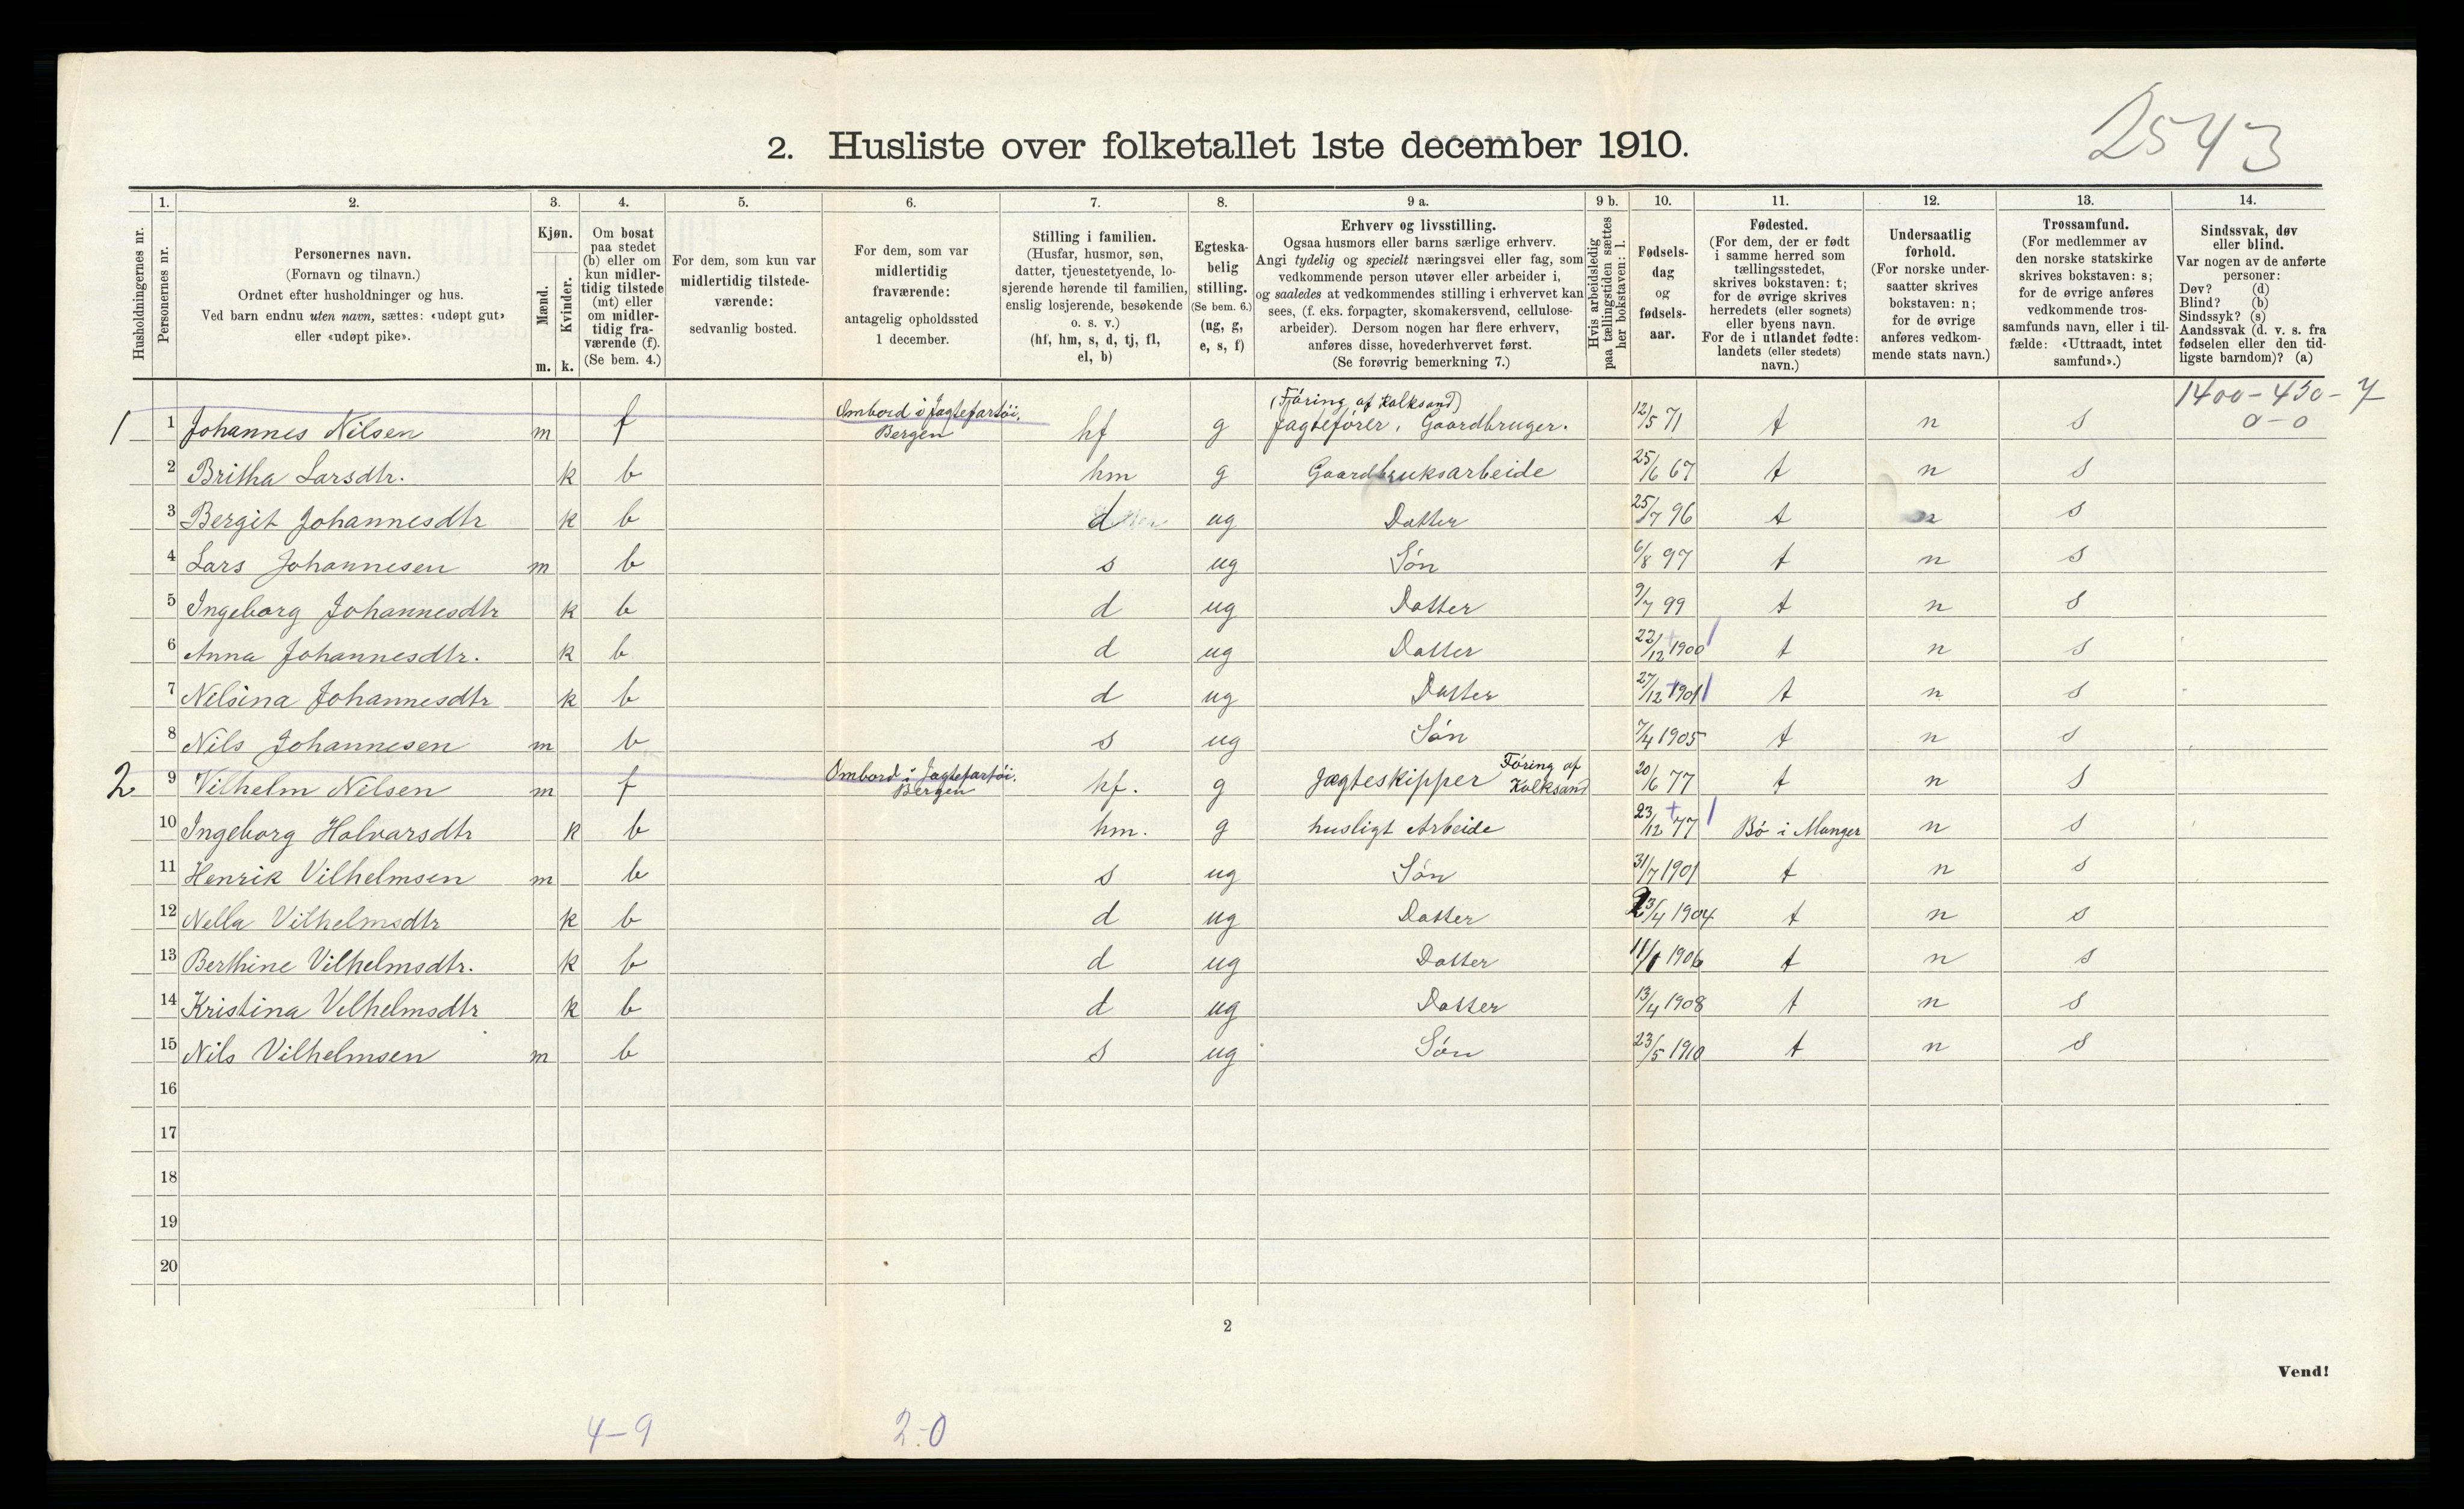 2543
2. Husliste over folketallet 1ste december 1910.
Husholdningernes nr.
1. Personernes nr.
2. Personernes navn.
(Fornavn og tilnavn.)
Ordnet efter husholdninger og hus.
Ved barn endnu uten navn, sættes: «udøpt gut»
eller «udøpt pike».
3. Kjøn.
Mænd. Kvinder.
m. k.
4. Om bosat
paa stedet
(b) eller om
kun midler-
tidig tilstede
(mt) eller
om midler-
tidig fra-
værende (f).
(Se bem. 4.)
5. For dem, som kun var
midlertidig tilstede-
værende:
sedvanlig bosted.
6. For dem, som var
midlertidig
fraværende:
antagelig opholdssted
1 december.
7. Stilling i familien.
(Husfar, husmor, søn,
datter, tjenestetyende, lo-
sjerende hørende til familien,
enslig losjerende, besøkende
o. s. v.)
(hf, hm, s, d, tj, fl,
el, b)
8. Egteska-
belig
stilling.
(Se bem. 6.)
(ug, g,
e, s, f)
9 a. Erhverv og livsstilling.
Ogsaa husmors eller barns særlige erhverv.
Angi tydelig og specielt næringsvei eller fag, som
vedkommende person utøver eller arbeider i,
og saaledes at vedkommendes stilling i erhvervet kan
sees, (f. eks. forpagter, skomakersvend, cellulose-
arbeider). Dersom nogen har flere erhverv,
anføres disse, hovederhvervet først.
(Se forøvrig bemerkning 7.)
9 b. Hvis arbeidsledig
paa tællingstiden sættes
her bokstaven: l.
10. Fødsels-
dag
og
fødsels-
aar.
11. Fødested.
(For dem, der er født
i samme herred som
tællingsstedet,
skrives bokstaven: t;
for de øvrige skrives
herredets (eller sognets)
eller byens navn.
For de i utlandet fødte:
landets (eller stedets)
navn.)
12. Undersaatlig
forhold.
(For norske under-
saatter skrives
bokstaven: n;
for de øvrige
anføres vedkom-
mende stats navn.)
13. Trossamfund.
(For medlemmer av
den norske statskirke
skrives bokstaven: s;
for de øvrige anføres
vedkommende tros-
samfunds navn, eller i til-
fælde: «Uttraadt, intet
samfund».)
14. Sindssvak, døv
eller blind.
Var nogen av de anførte
personer:
Døv? (d)
Blind? (b)
Sindssyk? (s)
Aandssvak (d. v. s. fra
fødselen eller den tid-
ligste barndom)? (a)
1400-430-7
0-0
1 1 Johannes Nilsen m f Ombord i Jagtefartöi. Bergen hf g (Föring af Kalksand) Jagtefører, Gaardbruger. 12/5 71 t n s
2 Britha Larsdtr. k b hm g Gaardbruksarbeide 25/6 67 t n s
3 Bergit Johannesdtr k b d ug Datter 25/7 96 t n s
4 Lars Johannesen m b s ug Sön 6/8 97 t n s
5 Ingeborg Johannesdtr k b d ug Datter 9/7 99 t n s
6 Anna Johannesdtr. k b d ug Datter 22/12 1900 t n s
7 Nelsina Johannesdtr k b d ug Datter 27/12 1901 t n s
8 Nils Johannesen m b s ug Sön 7/4 1905 t n s
2 9 Vilhelm Nilsen m f Ombord i Jagtefartöi. Bergen hf. g Jægteskipper Föring af Kalksand 20/6 77 t n s
10 Ingeborg Halvarsdtr k b hm. g husligt Arbeide 23/12 77 Bö i Manger n s
11 Henrik Vilhelmsen m b s ug Sön 31/7 1901 t n s
12 Nella Vilhelmsdtr k b d ug Datter 23/4 1904 t n s
13 Berthine Vilhelmsdtr. k b d ug Datter 11/1 1906 t n s
14 Kristina Vilhelmsdtr k b d ug Datter 13/4 1908 t n s
15 Nils Vilhelmsen m b s ug Sön 23/5 1910 t n s
16
17
18
19
20
2
Vend!
4-9 2-0